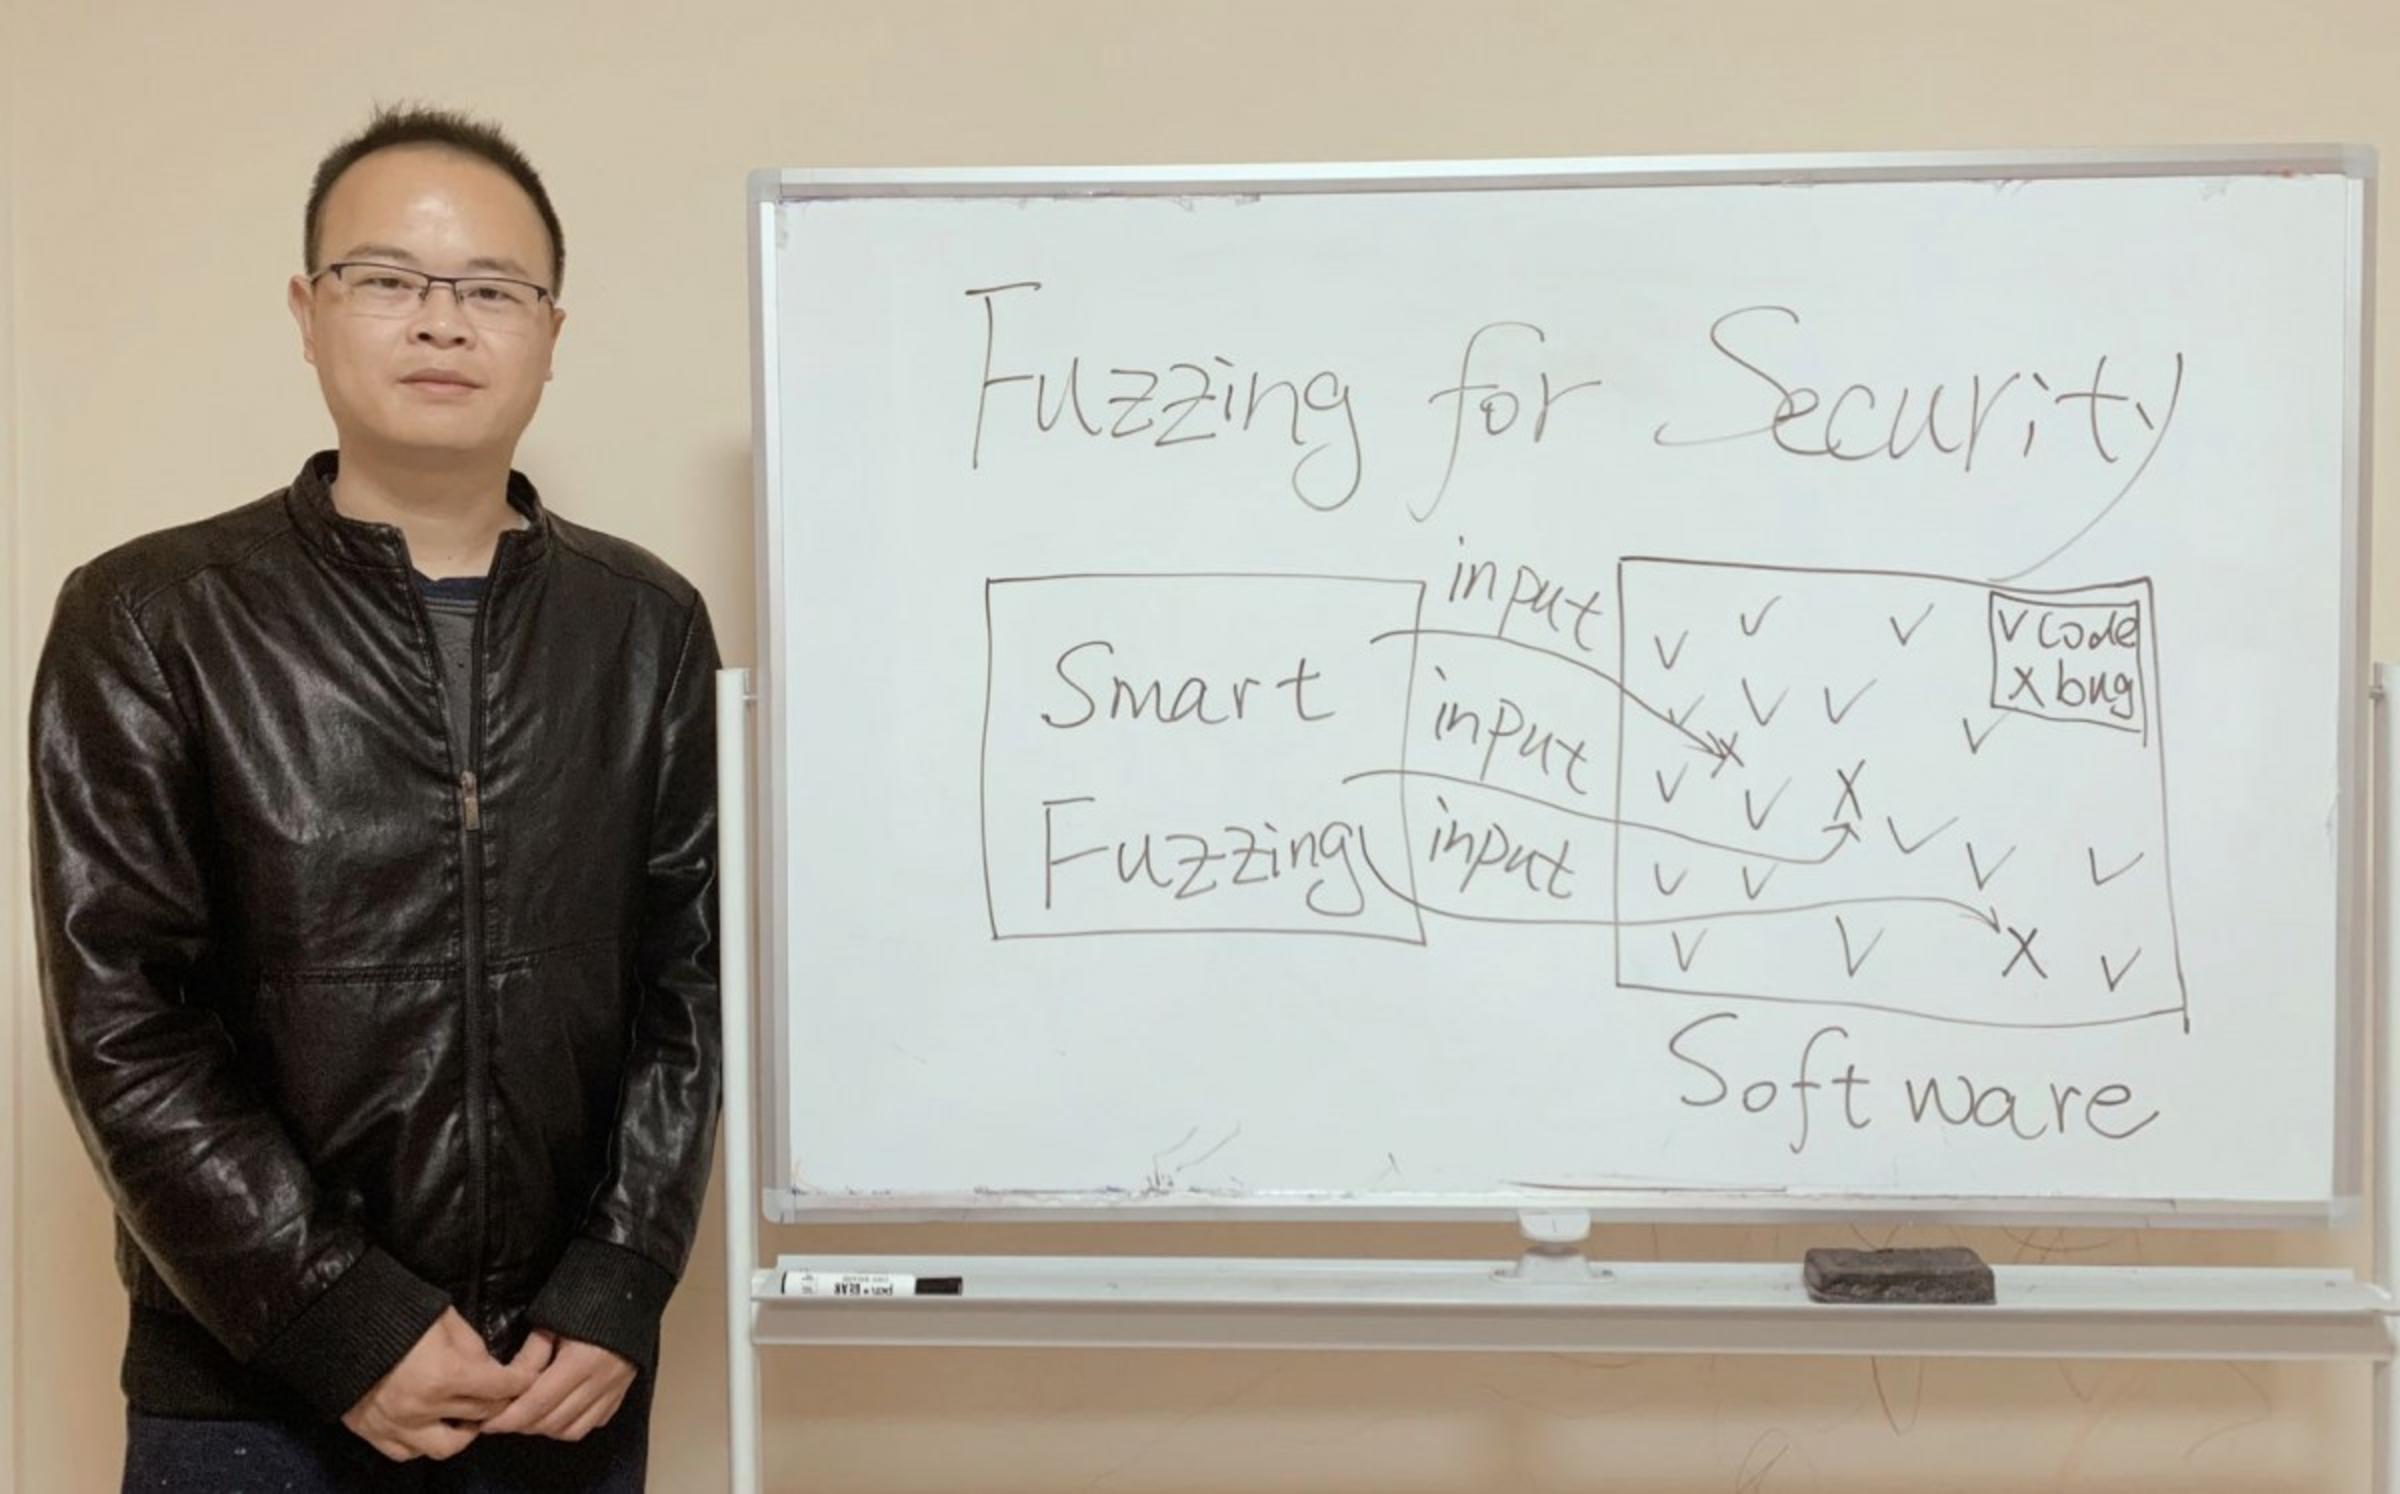 Fuzzing for Security
input
input
input
Smart
Fuzzing
V code
X bug
Software